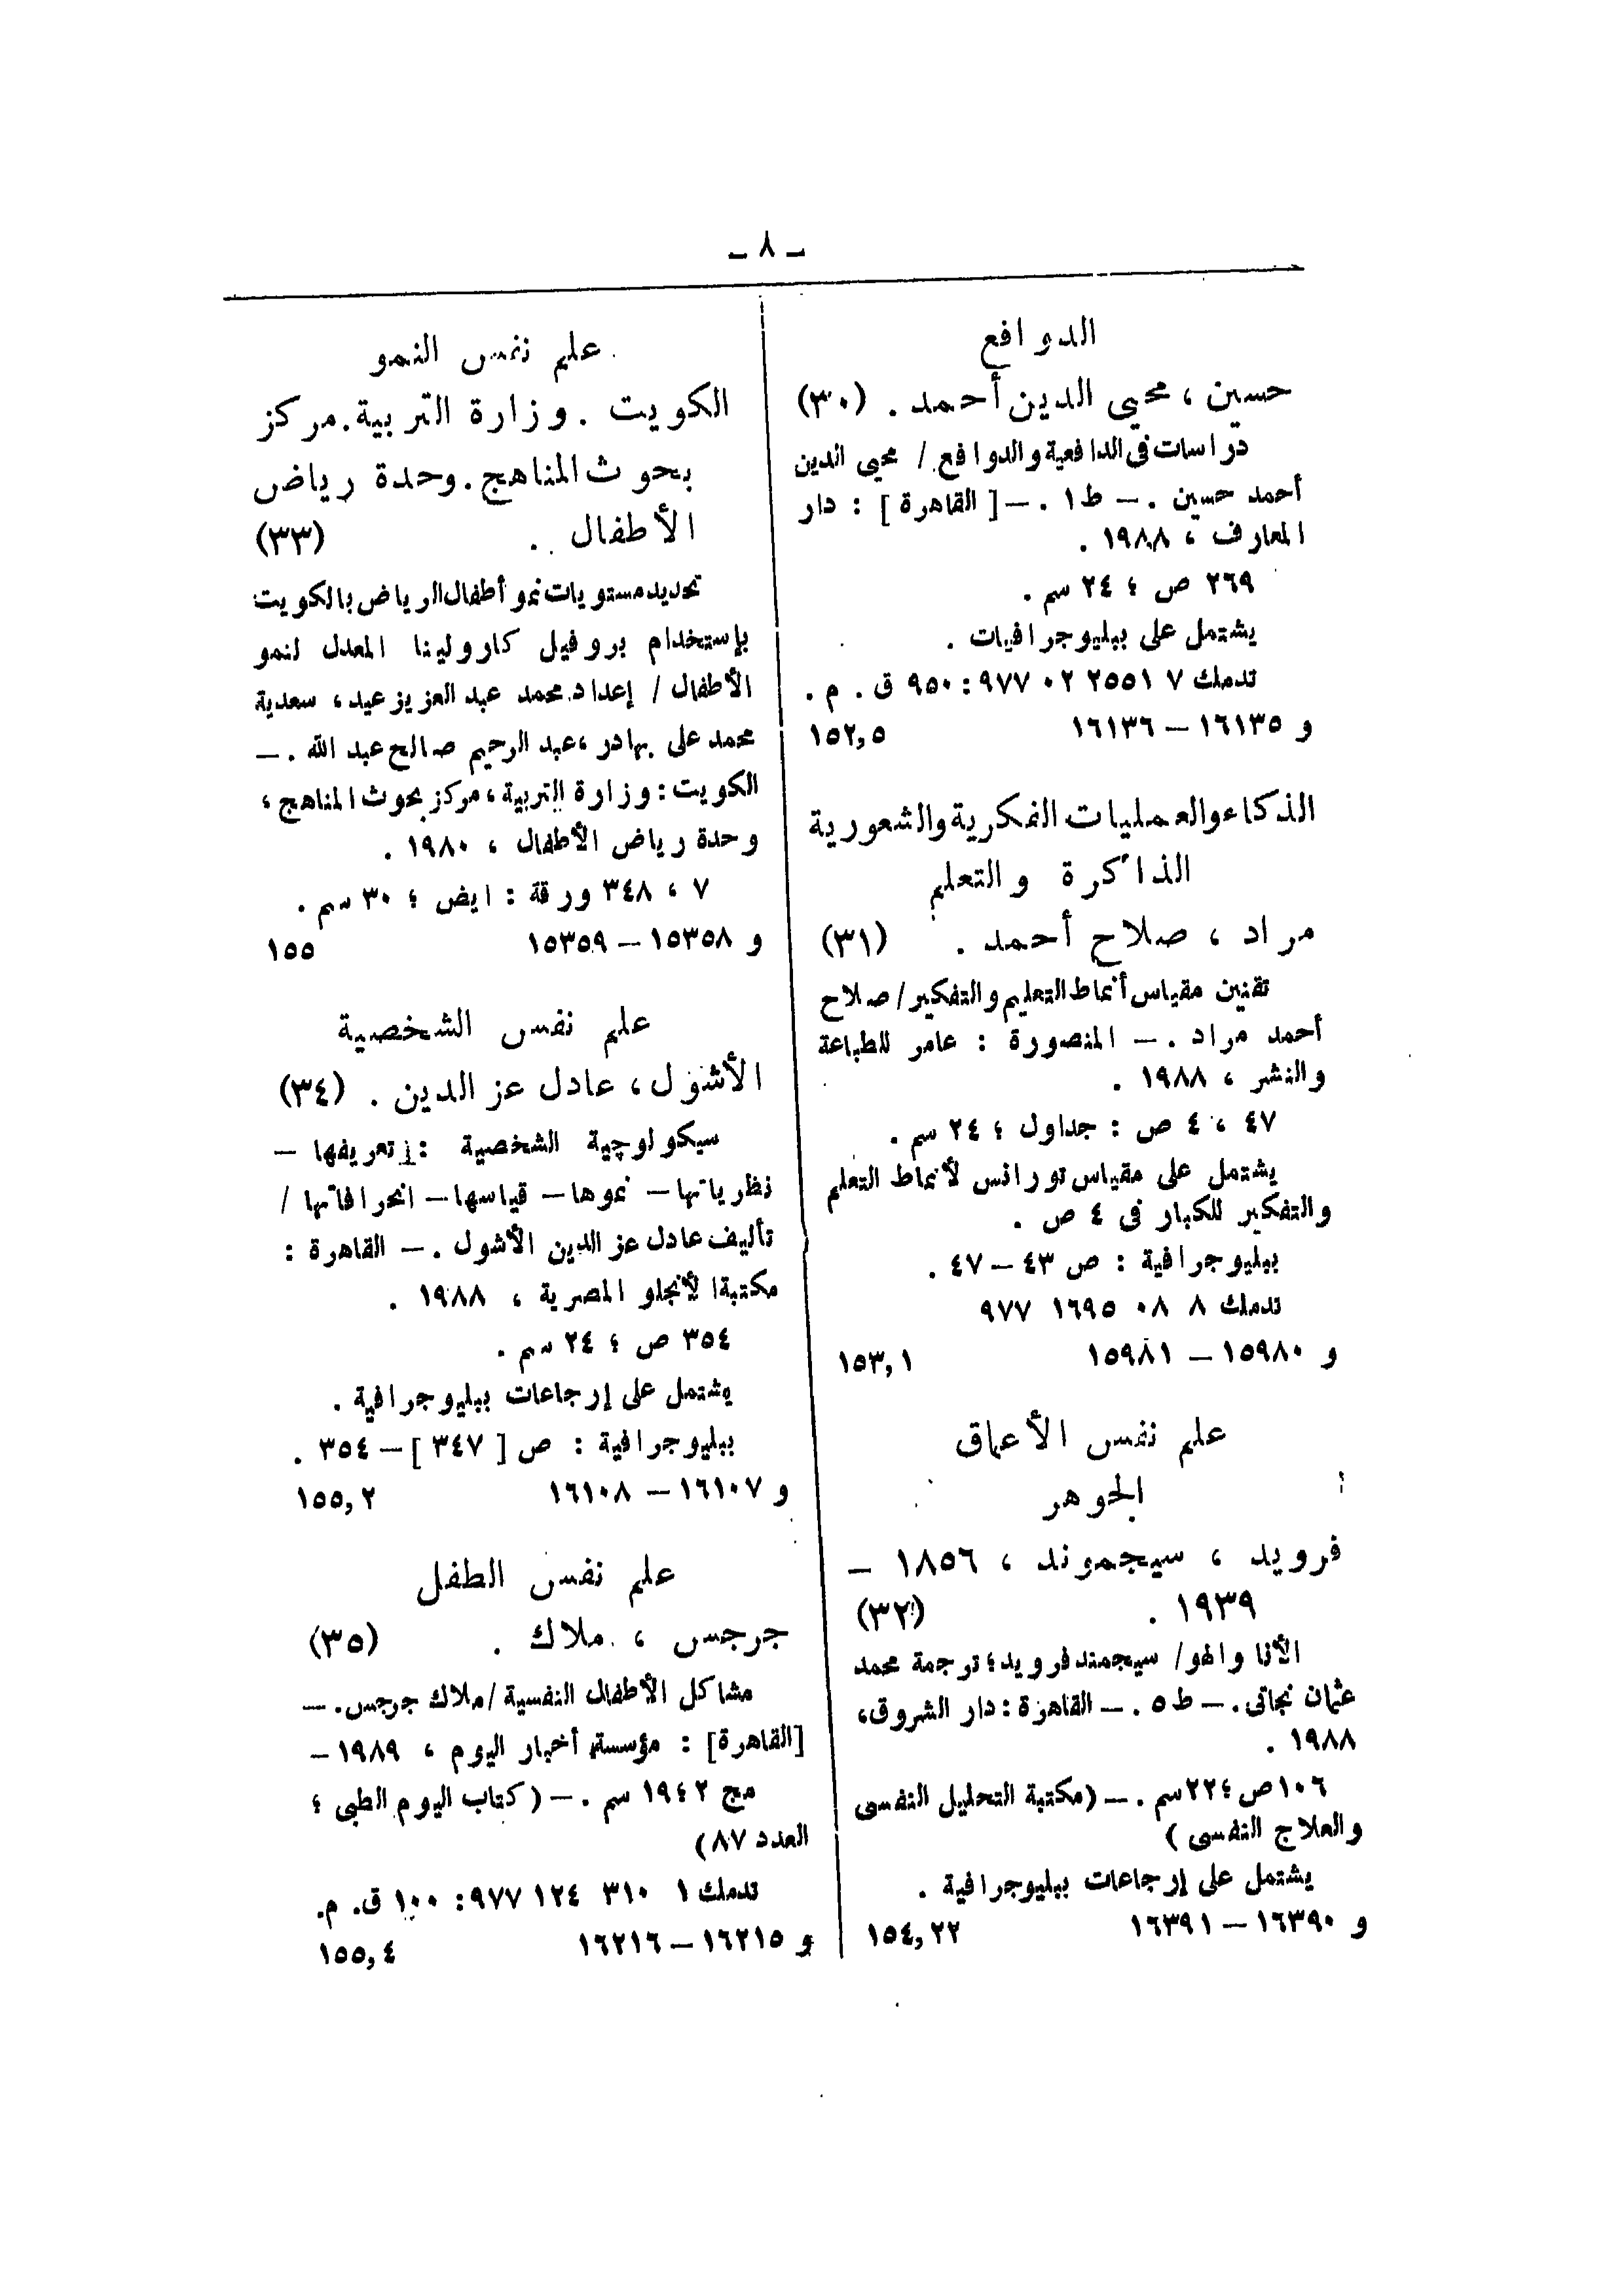 ـ ٨ ـ
الدوافع
حسين ، محيى الدين أحمد . (٣٠)
دراسات فى الدافعية والدوافع / محيى الدين
أحمد حسين . ــ ط ١ . ــ [ القاهرة ] : دار
المعارف ، ١٩٨٨ .
٢٦٩ ص ؛ ٢٤ سم .
يشتمل على ببليوجرافيات .
تدمك ٧ ٢٥٥١ ٠٢ ٩٧٧ : ٩٥٠ ق . م .
و ١٦١٣٥ ــ ١٦١٣٦ ١٥٢,٥
الذكاء والعمليات الفكرية والشعورية
الذاكرة والتعلم
مراد ، صلاح أحمد . (٣١)
تقنين مقياس أنماط التعليم والتفكير / صلاح
أحمد مراد . ــ المنصورة : عامر للطباعة
والنشر ، ١٩٨٨ .
٤٧ ، ٤ ص : جداول ؛ ٢٤ سم .
يشتمل على مقياس تورانس لأنماط التعلم
والتفكير للكبار فى ٤ ص .
ببليوجرافية : ص ٤٣ ــ ٤٧ .
تدمك ٨ ٠٨ ١٦٩٥ ٩٧٧
و ١٥٩٨٠ ــ ١٥٩٨١ ١٥٣,١
علم نفس الأعماق
الجوهر
فرويد ، سيجموند ، ١٨٥٦ ــ
١٩٣٩ . (٣٢)
الأنا والهو / سيجمند فرويد ؛ ترجمة محمد
عثمان نجاتى . ــ ط ٥ . ــ القاهرة : دار الشروق ،
١٩٨٨ .
١٠٦ ص ؛ ٢٢ سم . ــ (مكتبة التحليل النفسى
والعلاج النفسى )
يشتمل على إرجاعات ببليوجرافية .
و ١٦٣٩٠ ــ ١٦٣٩١ ١٥٤,٢٢
علم نفس النمو
الكويت . وزارة التربية . مركز
بحوث المناهج . وحدة رياض
الأطفال . (٣٣)
تحديد مستويات نمو أطفال الرياض بالكويت
بإستخدام بروفيل كارولينا المعدل لنمو
الأطفال / إعداد محمد عبد العزيز عيد ، سعدية
محمد على بهادر ، عبد الرحيم صالح عبد الله . ــ
الكويت : وزارة التربية ، مركز بحوث المناهج ،
وحدة رياض الأطفال ، ١٩٨٠ .
٧ ، ٣٤٨ ورقة : ايض ؛ ٣٠ سم .
و ١٥٣٥٨ ــ ١٥٣٥٩ ١٥٥
علم نفس الشخصية
الأشول ، عادل عز الدين . (٣٤)
سيكولوچية الشخصية : تعريفها ــ
نظرياتها ــ نموها ــ قياسها ــ انحرافاتها /
تأليف عادل عز الدين الأشول . ــ القاهرة :
مكتبة الأنجلو المصرية ، ١٩٨٨ .
٣٥٤ ص ؛ ٢٤ سم .
يشتمل على إرجاعات ببليوجرافية .
ببليوجرافية : ص [ ٣٤٧ ] ــ ٣٥٤ .
و ١٦١٠٧ ــ ١٦١٠٨ ١٥٥,٢
علم نفس الطفل
جرجس ، ملاك . (٣٥)
مشاكل الأطفال النفسية / ملاك جرجس . ــ
[القاهرة] : مؤسسة أخبار اليوم ، ١٩٨٩ ــ
مج ٢ ؛ ١٩ سم . ــ ( كتاب اليوم الطبى ؛
العدد ٨٧ )
تدمك ١ ٣١٠ ١٢٤ ٩٧٧ : ١٠٠ ق . م .
و ١٦٢١٥ ــ ١٦٢١٦ ١٥٥,٤